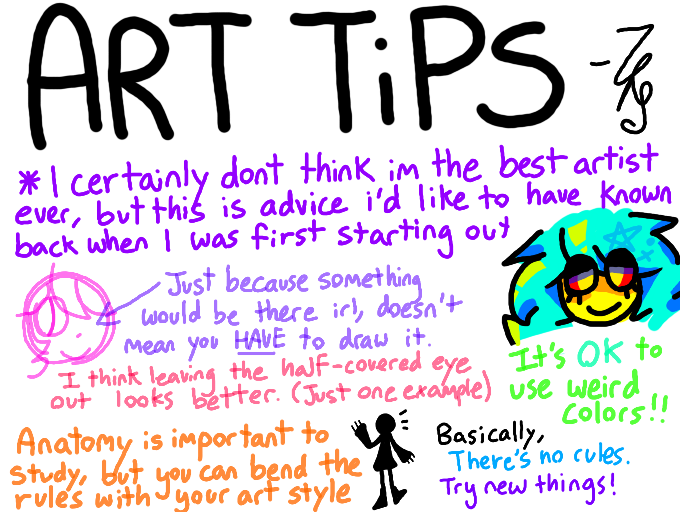 ART TiPS
*I certainly dont think im the best artist
ever, but this is advice i'd like to have known
back when I was first starting out
Just because something
would be there irl, doesn't
mean you HAVE to draw it.
I think leaving the half-covered eye
out looks better. (Just one example)
It's OK to
use weird
colors!!
Anatomy is important to
study, but you can bend the
rules with your art style
Basically,
There's no rules.
Try new things!